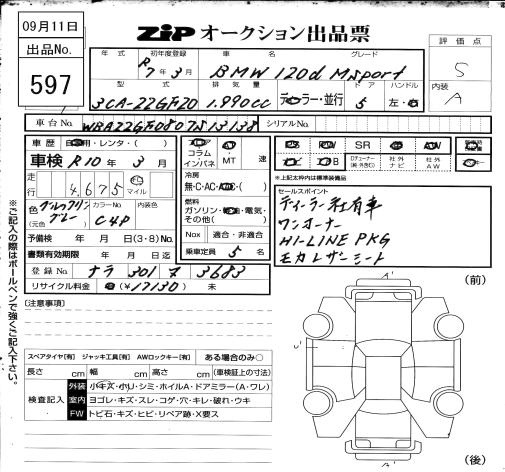 09月11日
出品No.
597
ZIP オークション出品票
評価点
S
内装
A
年式 初年度登録 車名 グレード
R7年3月 BMW 120d Msport
型式 排気量 ドア ハンドル
3CA-22GF20 1.990cc ディーラー・並行 5 左・
車台No. WBA22GF0807S13138 シリアルNo.
車歴 自家用・レンタ・( )
コラム インパネ MT 速
SR AW
車検 R10年3月
走行 4,675 km マイル
冷房
無・C・AC・( )
Dチューナー (純・外含む) 社外ナビ 社外AW
※上記太枠内は標準装備品
色 (元色) グレー カラーNo. C4P 内装色
燃料
ガソリン・軽油・電気・その他( )
セールスポイント
ディーラー社有車
ワンオーナー
HI-LINE PKG
モカレザーシート
予備検 年 月 日(3・8)No.
Nox 適合・非適合
書類有効期限 年 月 日迄
乗車定員 5 名
登録No. ナラ 301 マ 3683
リサイクル料金 (¥17130) 未
(注意事項)
※ご記入の際はボールペンで強くご記入下さい。
A'
(前)
U'
スペアタイヤ【有】 ジャッキ工具【有】 AWロックキー【有】 ある場合のみ○
長さ cm 幅 cm 高さ cm (車検証上の寸法)
検査記入
外装 小キズ・小U・シミ・ホイルA・ドアミラー(A・ワレ)
室内 ヨゴレ・キズ・スレ・コゲ・穴・キレ・破れ・ウキ
FW トビ石・キズ・ヒビ・リペア跡・X要ス
A'
(後)